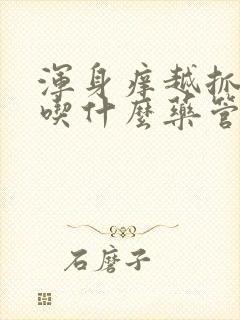 渾身癢越抓
喫什麼藥管
石磨子